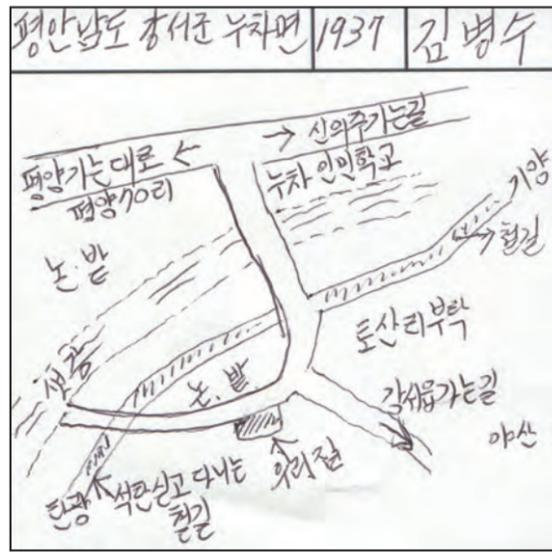 평안남도 강서군 누차면 1937 김병수
→ 신의주가는길
평양가는대로 ←
평양70리
누차 인민학교
기양
→ 철길
논·밭
토산리부락
샛강
논.밭
강서읍가는길
야산
우리집
탄광
석탄싣고 다니는
철길